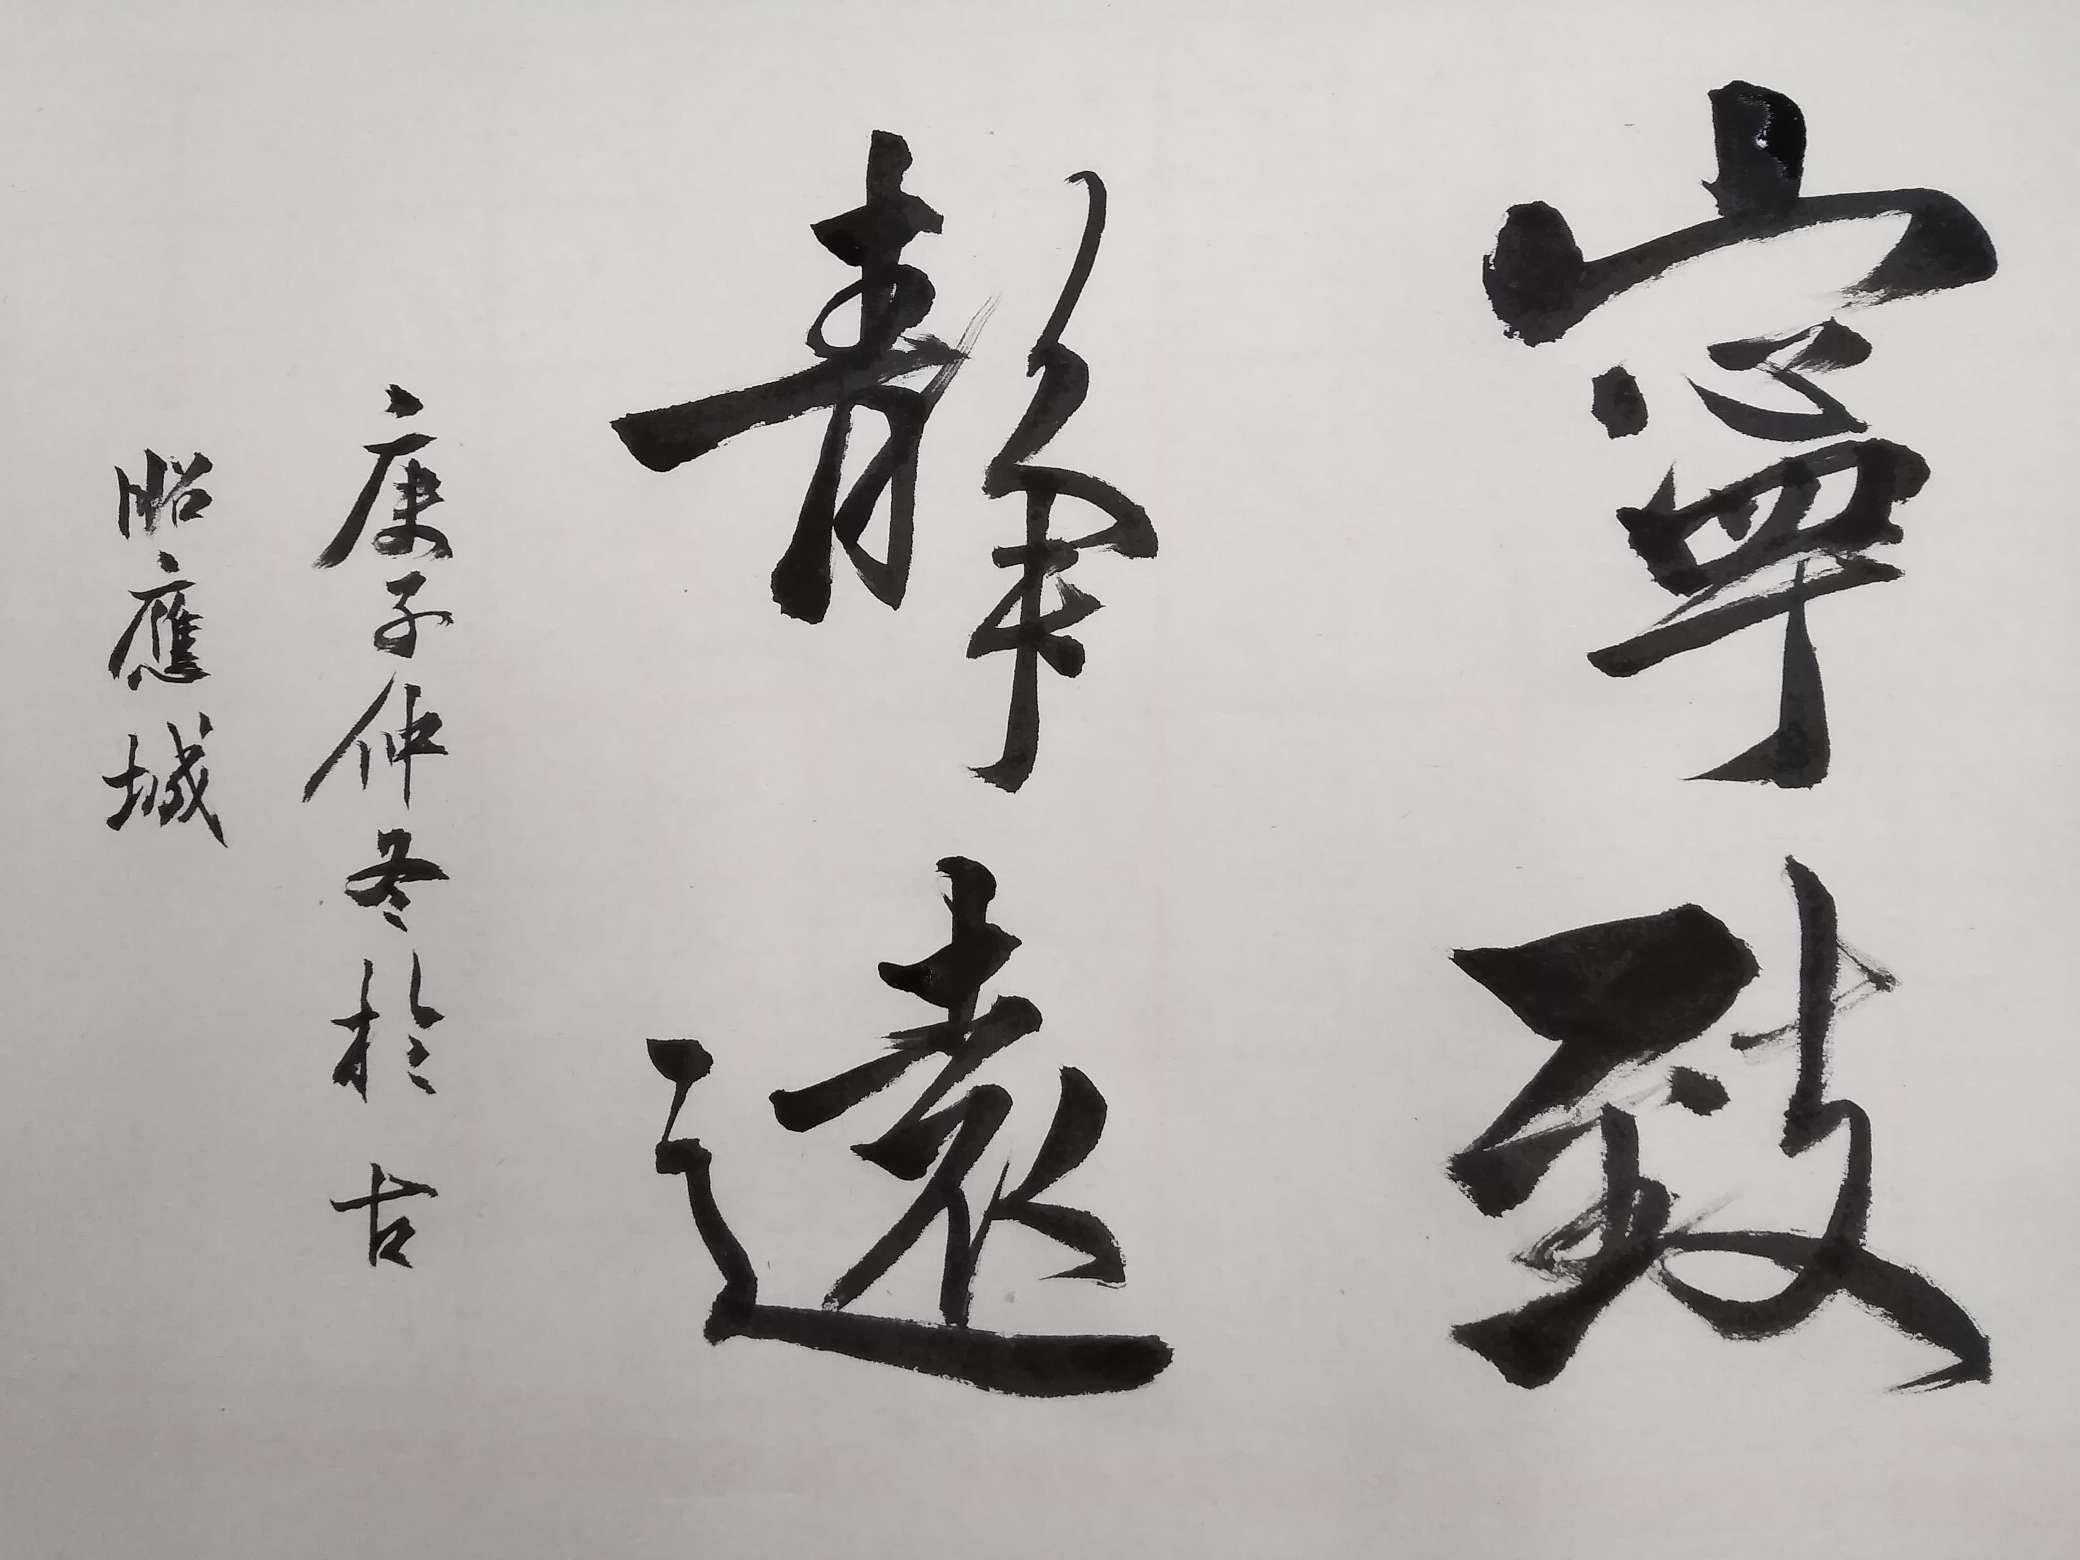 寧致
靜遠
庚子仲冬於古
昭應城